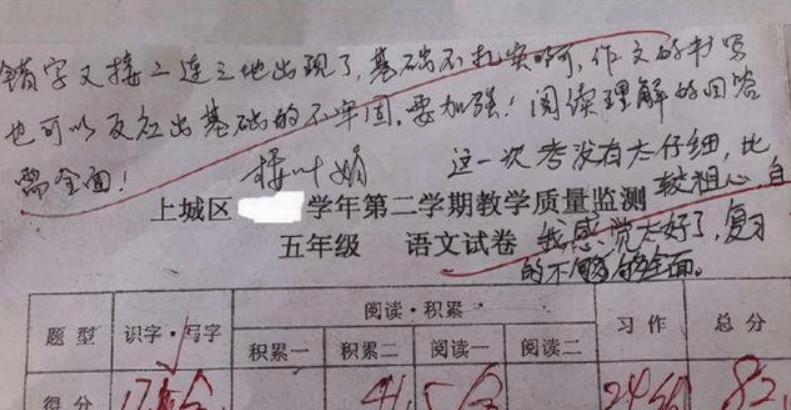 错字又接二连三地出现了,基础不扎实啊,作文的书写
也可以反应出基础的不牢固,要加强!阅读理解的回答
需全面!
这一次考没有太仔细,比
较粗心,自
我感觉太好了,复习
的不够全面。
上城区 学年第二学期教学质量监测
五年级 语文试卷
题型 识字·写字 阅读·积累 习作 总分
积累一 积累二 阅读一 阅读二
得分 82